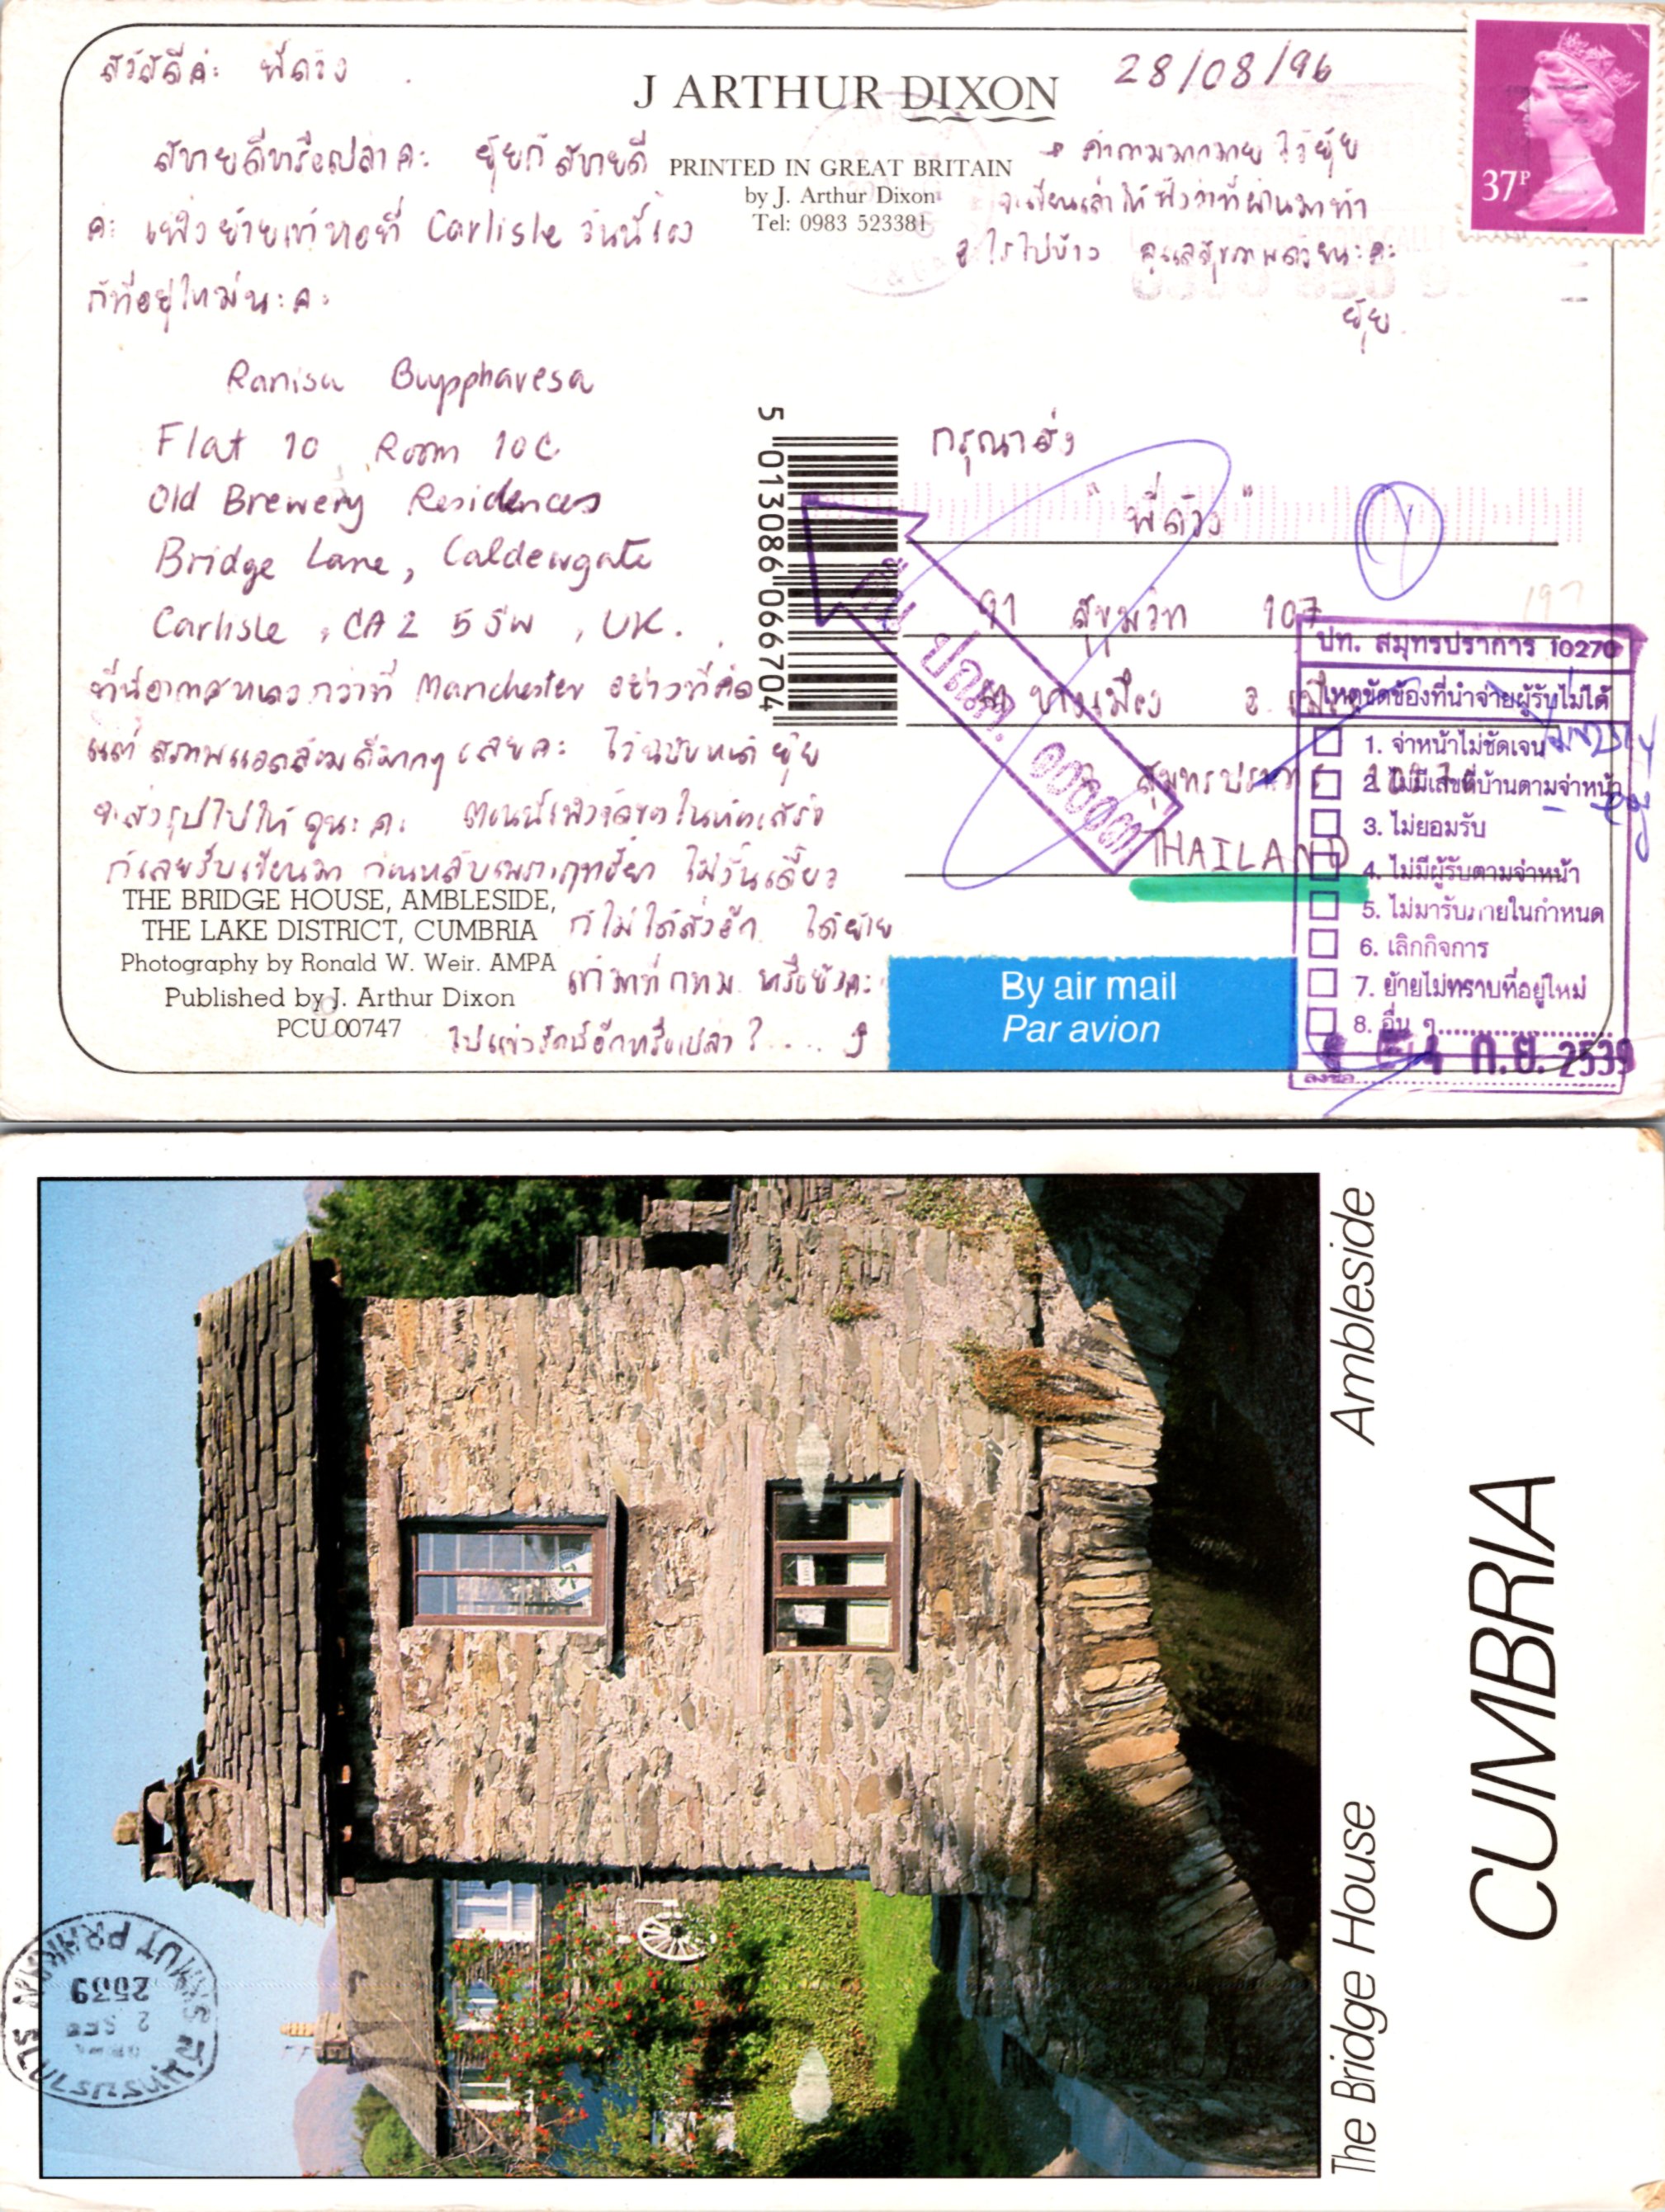 สวัสดีค่ะ พี่ด้วง
J ARTHUR DIXON
28/08/96
PRINTED IN GREAT BRITAIN
by J. Arthur Dixon
Tel: 0983 523381
37P
สบายดีหรือเปล่าคะ ยุ้ยก็สบายดี
ค่ะ เพิ่งย้ายเข้าหอที่ Carlisle วันนี้เอง
ก็ที่อยู่ใหม่นะคะ
Ranisa Buppphavesa
Flat 10 Room 10C
Old Brewery Residences
Bridge Lane, Caldewgate
Carlisle, CA2 5SW, UK.
ที่นี่อากาศหนาวกว่าที่ Manchester อย่างที่คิด
แต่สภาพแวดล้อมดีมากๆ เลยค่ะ ไว้ฉบับหน้ายุ้ย
จะส่งรูปไปให้ดูนะคะ ตอนนี้เพิ่งจัดของในห้องเสร็จ
ก็เลยรีบเขียนมา ก่อนหลับเพราะฤทธิ์ยา ไม่งั้นเดี๋ยว
ก็ไม่ได้ส่งอีก ได้ย้าย
เข้ามาที่ กทม. หรือยังคะ
ไปเที่ยวไหนอีกหรือเปล่า?....
THE BRIDGE HOUSE, AMBLESIDE,
THE LAKE DISTRICT, CUMBRIA
Photography by Ronald W. Weir. AMPA
Published by J. Arthur Dixon
PCU 00747
คำถามมากมาย ไว้ยุ้ย
จะเขียนเล่าให้ฟังว่าที่ผ่านมาทำ
อะไรไปบ้าง ดูแลสุขภาพด้วยนะคะ
ยุ้ย
5 013086 066704
กรุณาส่ง
"พี่ด้วง"
91 สุขุมวิท 107
บางเมือง อ. เมือง
สมุทรปราการ
THAILAND
คืน ปณศ. ๐๐๐๓
By air mail
Par avion
ปท. สมุทรปราการ 10270
เหตุขัดข้องที่นำจ่ายผู้รับไม่ได้
1. จ่าหน้าไม่ชัดเจน
2. ไม่มีเลขที่บ้านตามจ่าหน้า
3. ไม่ยอมรับ
4. ไม่มีผู้รับตามจ่าหน้า
5. ไม่มารับภายในกำหนด
6. เลิกกิจการ
7. ย้ายไม่ทราบที่อยู่ใหม่
8. อื่น ๆ
ลงชื่อ
ก.ย. 2539
The Bridge House Ambleside
CUMBRIA
สมุทรปราการ
2 SEP
2539
SAMUT PRAKAN